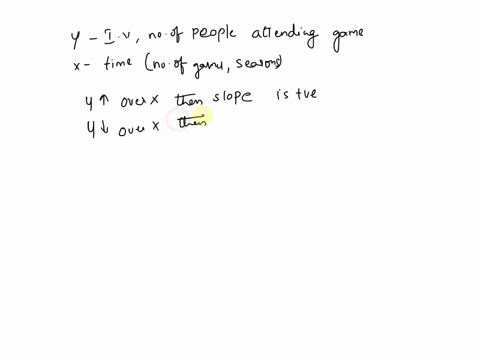 y - I.v, no. of people attending game
x - time (no. of games, seasons)
y ↑ over x then slope is +ve
y ↓ over x then